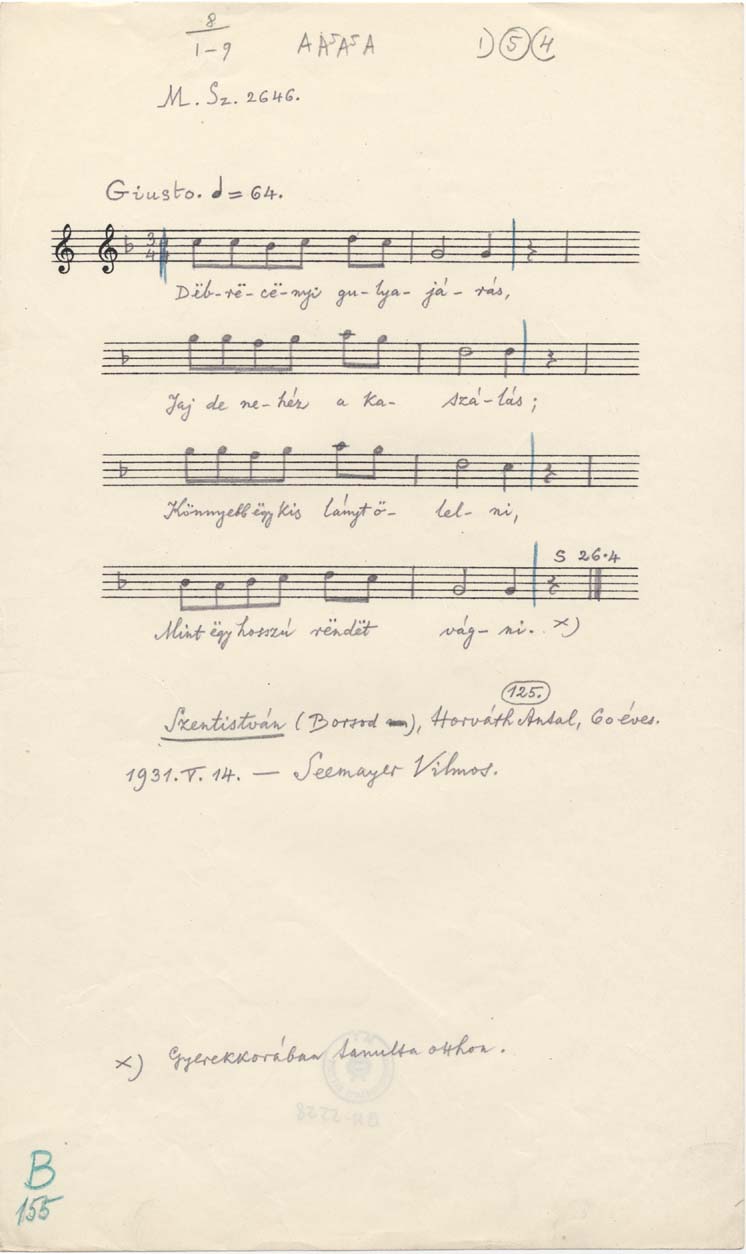 8
1–9 A A⁵ A⁵ A 1) ⑤ ④
M. Sz. 2646.
Giusto. 𝅗𝅥 = 64.
3
4
Dëb-rë-cë-nyi gu-lya-já-rás,
Jaj de ne-héz a ka- szá-lás;
Könnyebb ëgy kis lányt ö- lel- ni,
S 26.4
Mint ëgy hosszú rëndët vág-ni. x)
125.
Szentistván (Borsod), Horváth Antal, 60 éves.
1931. V. 14. — Seemayer Vilmos.
x) Gyerekkorában tanulta otthon.
B
155